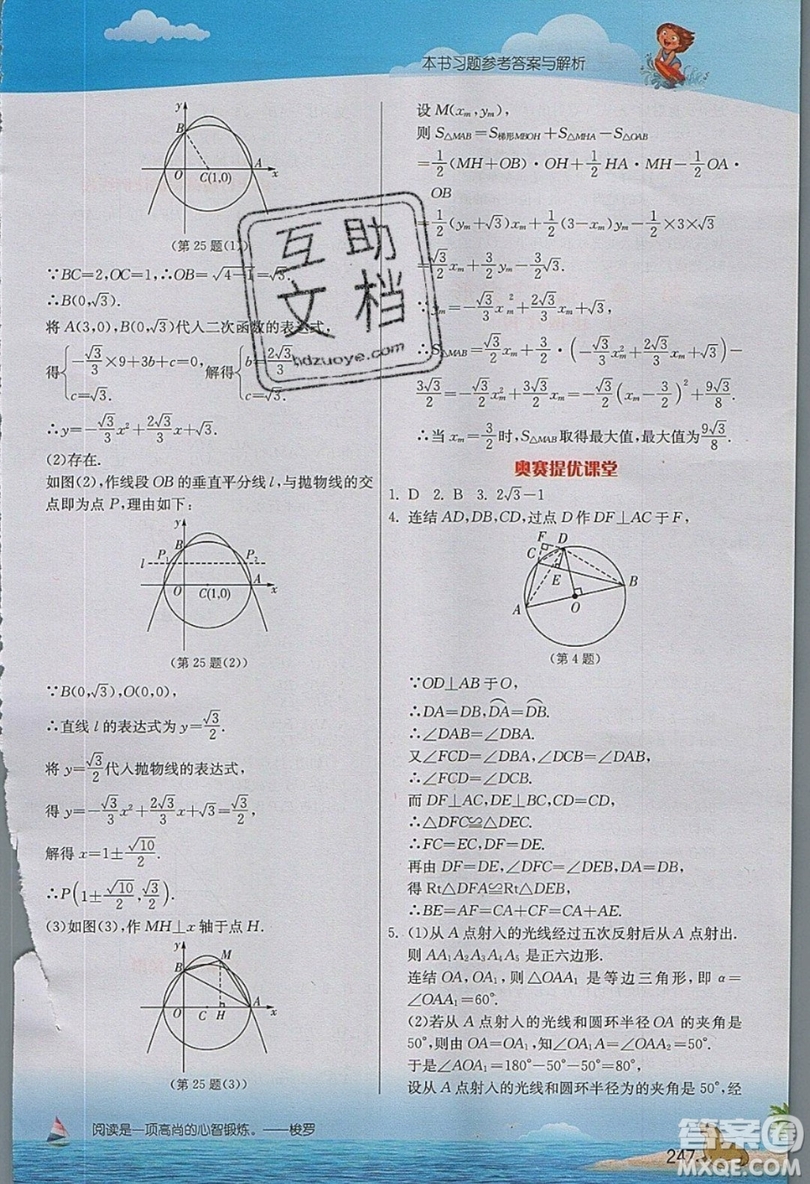 本书习题参考答案与解析
y
B
O
C(1,0)
A
x
(第25题(1))
∵BC=2,OC=1,∴OB=√4-1=√3.
∴B(0,√3).
将A(3,0),B(0,√3)代入二次函数的表达式,
得{-√3/3×9+3b+c=0, c=√3. 解得{b=2√3/3, c=√3.
∴y=-√3/3x²+2√3/3x+√3.
(2)存在.
如图(2),作线段OB的垂直平分线l,与抛物线的交
点即为点P,理由如下:
y
B
P₁
P₂
l
O
C(1,0)
A
x
(第25题(2))
∵B(0,√3),O(0,0),
∴直线l的表达式为y=√3/2.
将y=√3/2代入抛物线的表达式,
得y=-√3/3x²+2√3/3x+√3=√3/2,
解得x=1±√10/2.
∴P(1±√10/2,√3/2).
(3)如图(3),作MH⊥x轴于点H.
y
M
B
O
C
H
A
x
(第25题(3))
设M(xₘ,yₘ),
则S△MAB=S梯形MBOH+S△MHA-S△OAB
=1/2(MH+OB)·OH+1/2HA·MH-1/2OA·
OB
=1/2(yₘ+√3)xₘ+1/2(3-xₘ)yₘ-1/2×3×√3
=√3/2xₘ+3/2yₘ-3√3/2.
∵yₘ=-√3/3xₘ²+2√3/3xₘ+√3,
∴S△MAB=√3/2xₘ+3/2·(-√3/3xₘ²+2√3/3xₘ+√3)-
3√3/2=-√3/2xₘ²+3√3/2xₘ=-√3/2(xₘ-3/2)²+9√3/8.
∴当xₘ=3/2时,S△MAB取得最大值,最大值为9√3/8.
奥赛提优课堂
1. D 2. B 3. 2√3-1
4. 连结AD,DB,CD,过点D作DF⊥AC于F,
F
D
C
E
B
A
O
(第4题)
∵OD⊥AB于O,
∴DA=DB,DA=DB.
∴∠DAB=∠DBA.
又∠FCD=∠DBA,∠DAB=∠DCB,
∴∠FCD=∠DCE.
而DF⊥AC,DE⊥BC,CD=CD,
∴△DFC≌△DEC.
∴FC=EC,DF=DE.
再由DF=DE,∠DFC=∠DEB,DA=DB,
得Rt△DFA≌Rt△DEB.
∴BE=AF=CA+CF=CA+CE.
5. (1)从A点射入的光线经过五次反射后从A点射出.
则AA₁A₂A₃A₄A₅是正六边形.
连结OA,OA₁,则△OAA₁是等边三角形,即α=
∠OAA₁=60°.
(2)若从A点射入的光线和圆环半径OA的夹角是
50°,则由OA=OA₁,知∠OA₁A=∠OAA₁=50°.
于是∠AOA₁=180°-50°-50°=80°.
设从A点射入的光线和圆环半径为的夹角是50°,经
互助
文档
hdzuoye.com
阅读是一项高尚的心智锻炼。——梭罗
247
答案圈
MXQE.COM